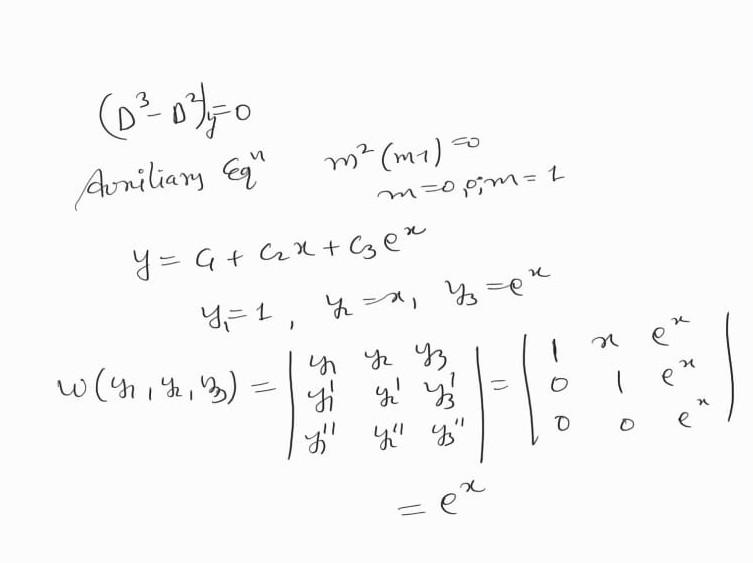 (D³ - D²)y = 0
Auxiliary Eqⁿ m² (m-1) = 0
m = 0, 0; m = 1
y = C₁ + C₂x + C₃eˣ
y₁ = 1, y₂ = x, y₃ = eˣ
W(y₁, y₂, y₃) = | y₁ y₂ y₃ | = | 1 x eˣ |
| y₁' y₂' y₃' | | 0 1 eˣ |
| y₁'' y₂'' y₃'' | | 0 0 eˣ |
= eˣ